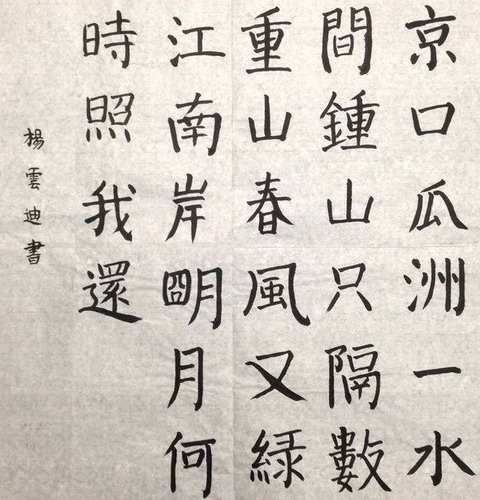 京口瓜洲一水
間鍾山只隔數
重山春風又緑
江南岸明月何
時照我還
楊雲迪書